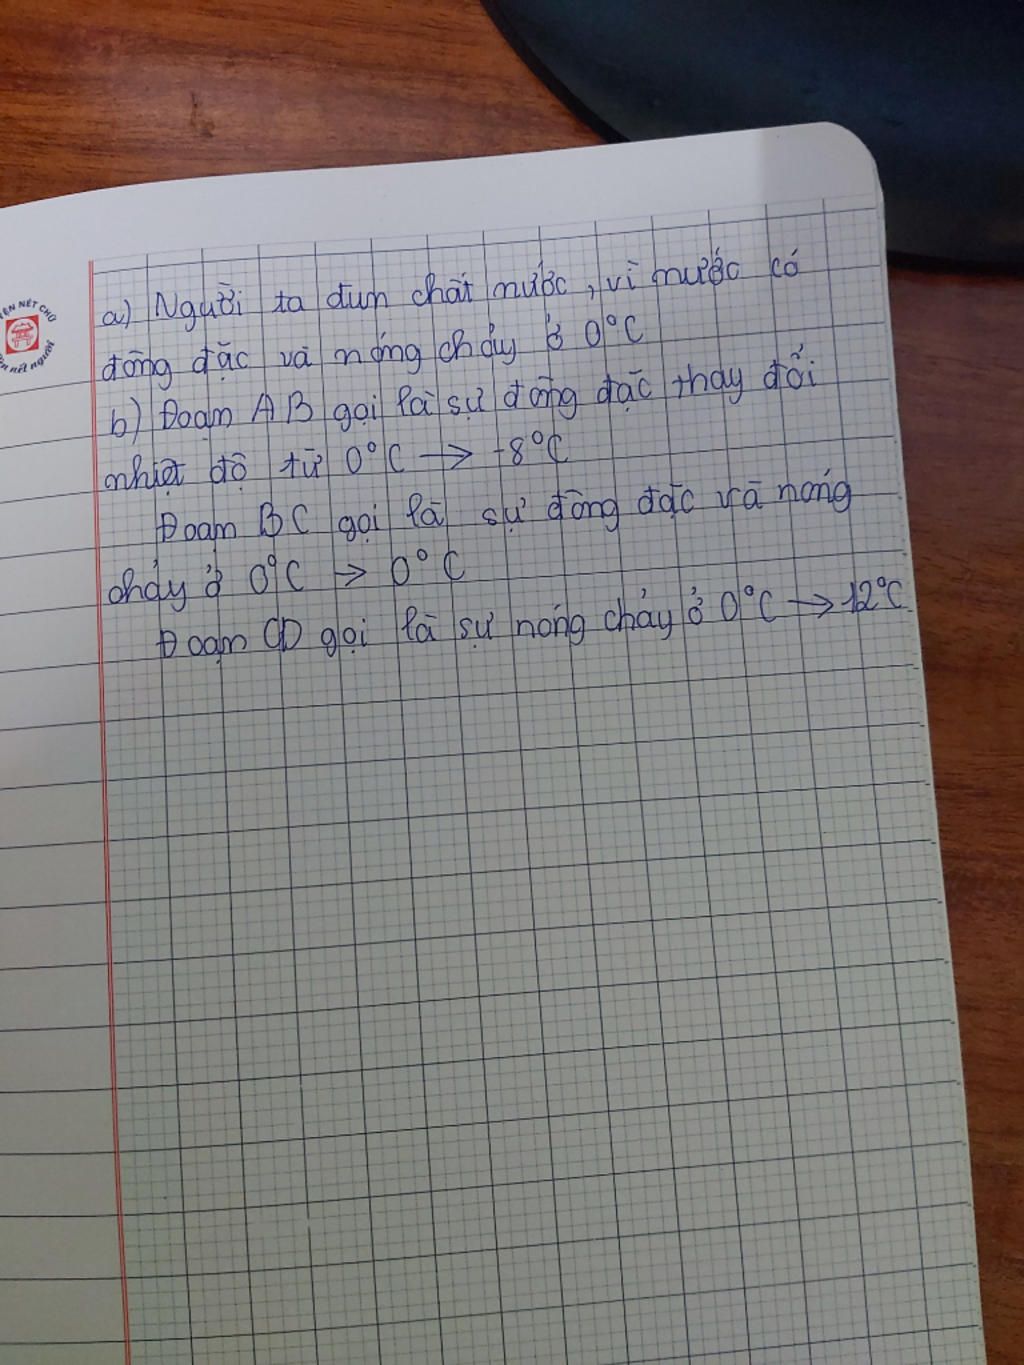 YỆN NÉT CHỮ
nết người
a) Người ta đun chất nước, vì nước có
đông đặc và nóng chảy ở 0°C
b) Đoạn AB gọi là sự đông đặc thay đổi
nhiệt độ từ 0°C → -8°C
Đoạn BC gọi là sự đông đặc và nóng
chảy ở 0°C → 0°C
Đoạn CD gọi là sự nóng chảy ở 0°C → 12°C